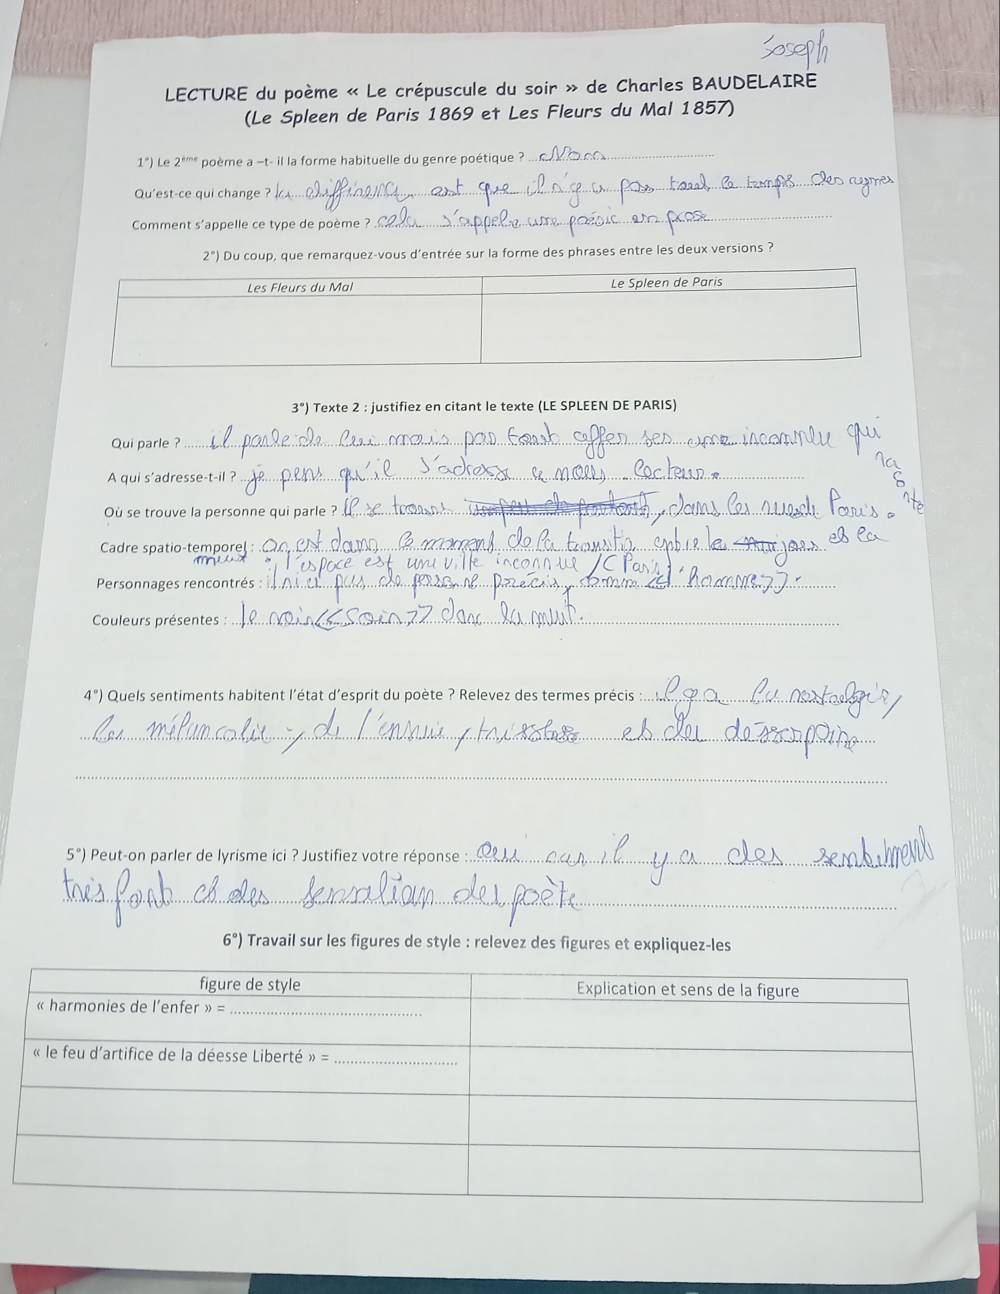 Joseph
LECTURE du poème « Le crépuscule du soir » de Charles BAUDELAIRE
(Le Spleen de Paris 1869 et Les Fleurs du Mal 1857)
1°) Le 2ème poème a –t- il la forme habituelle du genre poétique ? Non
Qu'est-ce qui change ? la différence est que il n'y a pas tout le temps des rymes
Comment s'appelle ce type de poème ? cela s'appele une poésie en prose
2°) Du coup, que remarquez-vous d'entrée sur la forme des phrases entre les deux versions ?
Les Fleurs du Mal Le Spleen de Paris
3°) Texte 2 : justifiez en citant le texte (LE SPLEEN DE PARIS)
Qui parle ? il parle de lui mais pas tout une inconnu qui
raconte
A qui s'adresse-t-il ? je pens qu'il s'adress a nous lecteur.
Où se trouve la personne qui parle ? Il se trouve dans les rues de Paris.
Cadre spatio-temporel : on est dans le moment de la transitio entre le jours et la
nuit, l'espace est une ville inconnue / (Paris)
Personnages rencontrés : il n'i a pas de personne précis, comme << homme >>.
Couleurs présentes : le noir << soir >> dans la nuit.
4°) Quels sentiments habitent l'état d'esprit du poète ? Relevez des termes précis : il y a la nostalogie,
la mélancolie, de l'ennui, tristesse et du
5°) Peut-on parler de lyrisme ici ? Justifiez votre réponse : oui car il y a des sentiment
très font et des du poète
6°) Travail sur les figures de style : relevez des figures et expliquez-les
figure de style Explication et sens de la figure
« harmonies de l'enfer » =
« le feu d'artifice de la déesse Liberté » =